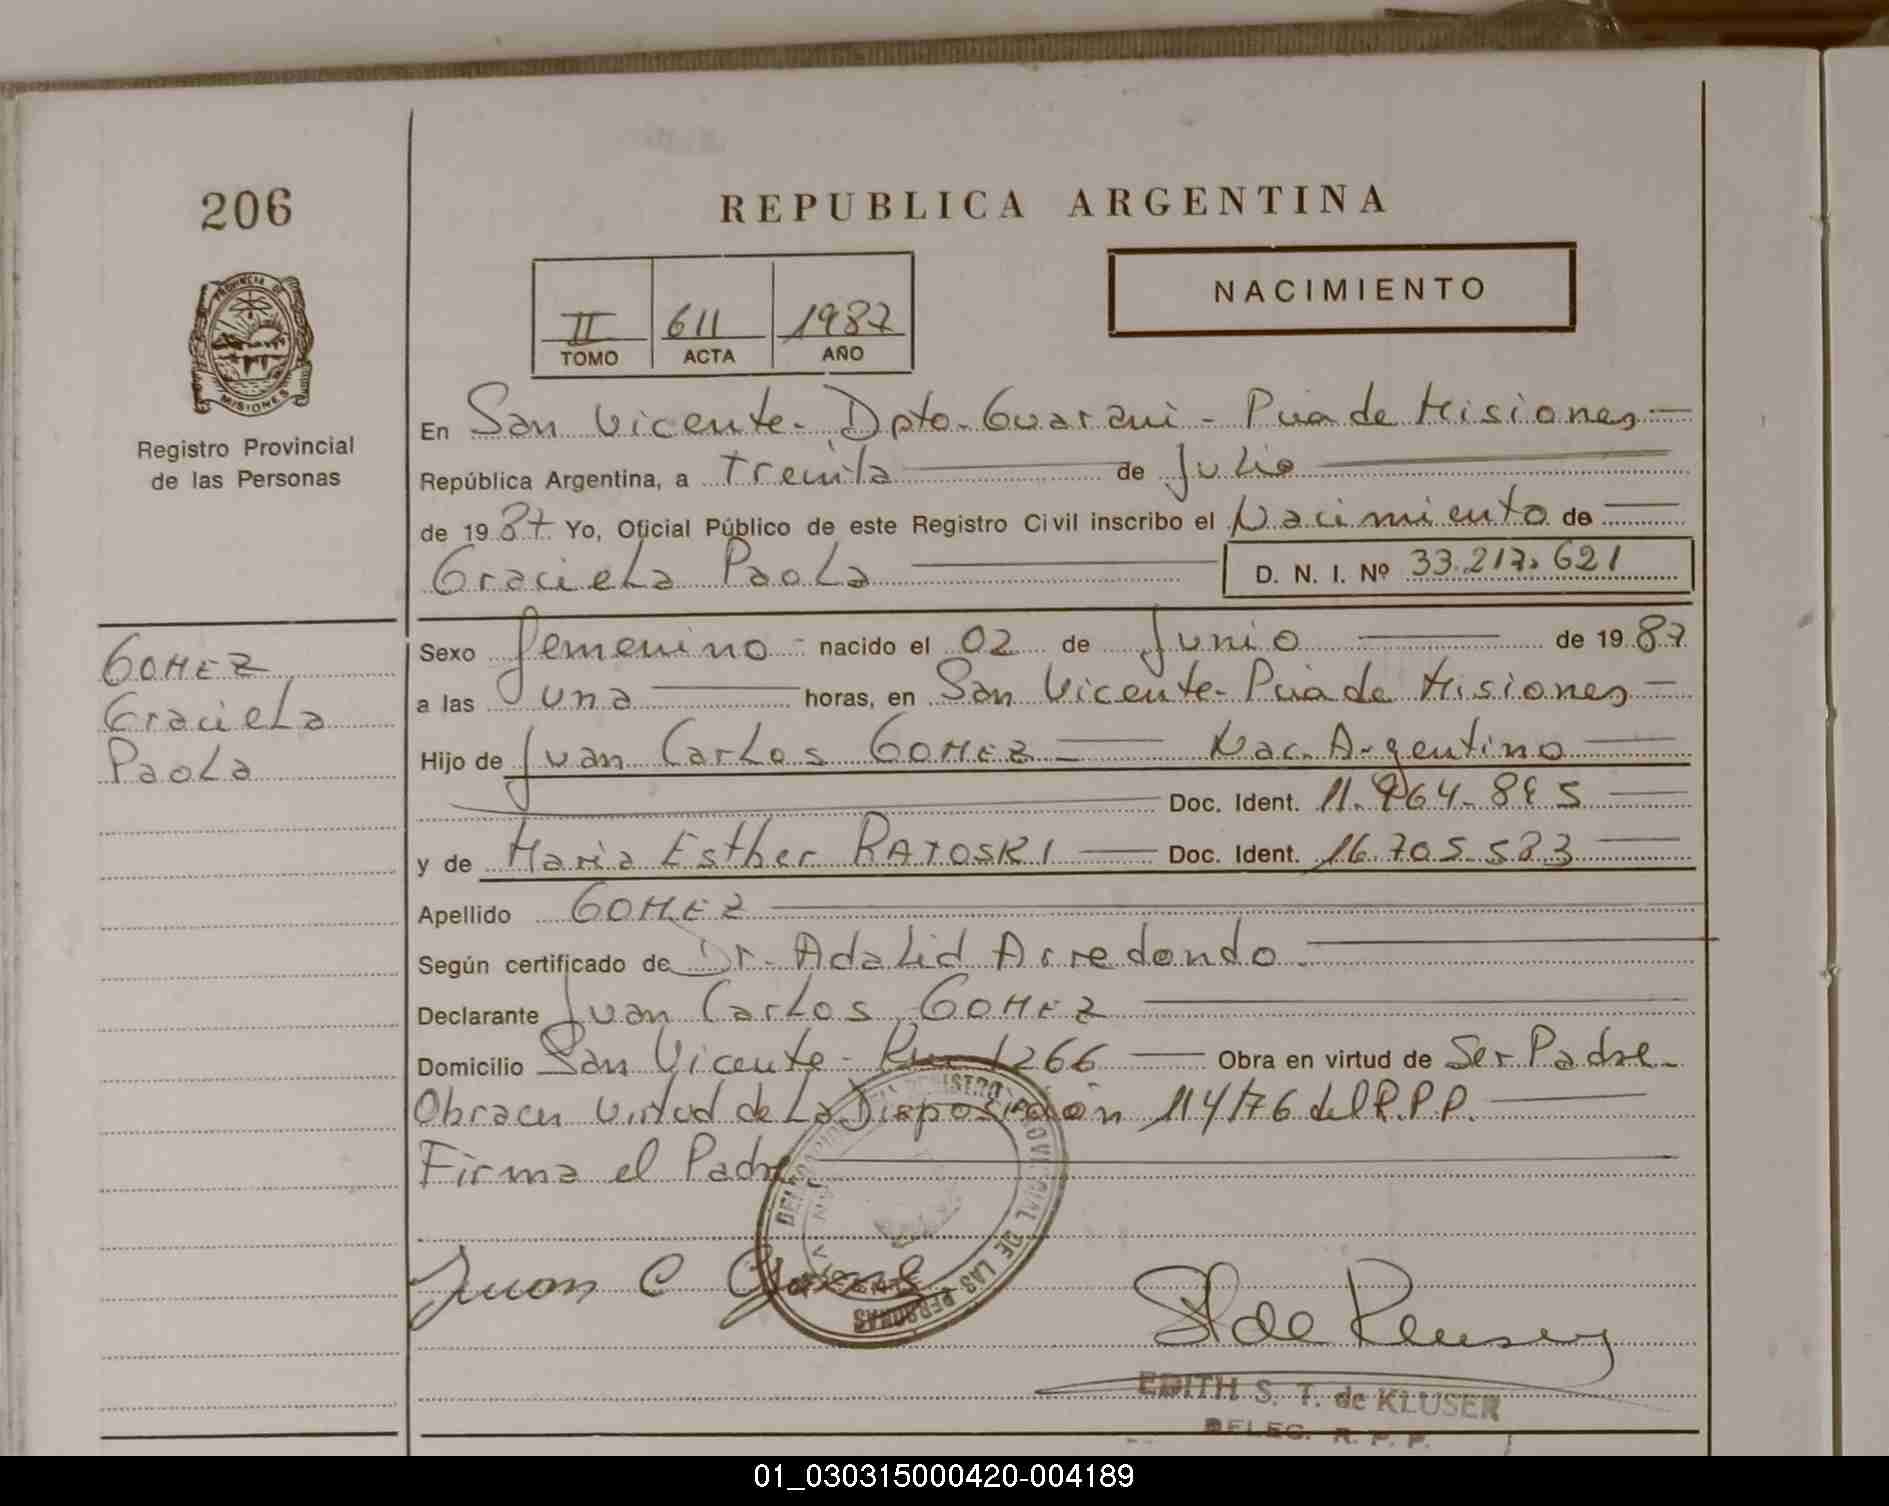 206
REPUBLICA ARGENTINA
NACIMIENTO
II 611 1987
TOMO ACTA AÑO
PROVINCIA DE
MISIONES
Registro Provincial
de las Personas
En San Vicente - Dpto. Guarani - Pcia de Misiones
República Argentina, a treinta de Julio
de 1987 Yo, Oficial Público de este Registro Civil inscribo el Nacimiento de
Graciela Paola
D. N. I. Nº 33.217.621
GOMEZ
Graciela
Paola
Sexo femenino - nacido el 02 de Junio de 1987
a las una horas, en San Vicente - Pcia de Misiones
Hijo de Juan Carlos GOMEZ Nac. Argentino
Doc. Ident. 11.964.895
y de Maria Esther RATOSKI Doc. Ident. 16.705.583
Apellido GOMEZ
Según certificado de Dr. Adalid Arredondo
Declarante Juan Carlos GOMEZ
Domicilio San Vicente - 1266 Obra en virtud de Ser Padre -
Obra en virtud de La Disposición 114/76 del R.P.P.
Firma el Padre
REGISTRO PROVINCIAL DE LAS PERSONAS
Juan C Gomez
EDITH S. T. de KLUSER
DELEG. R. P. P.
01_030315000420-004189